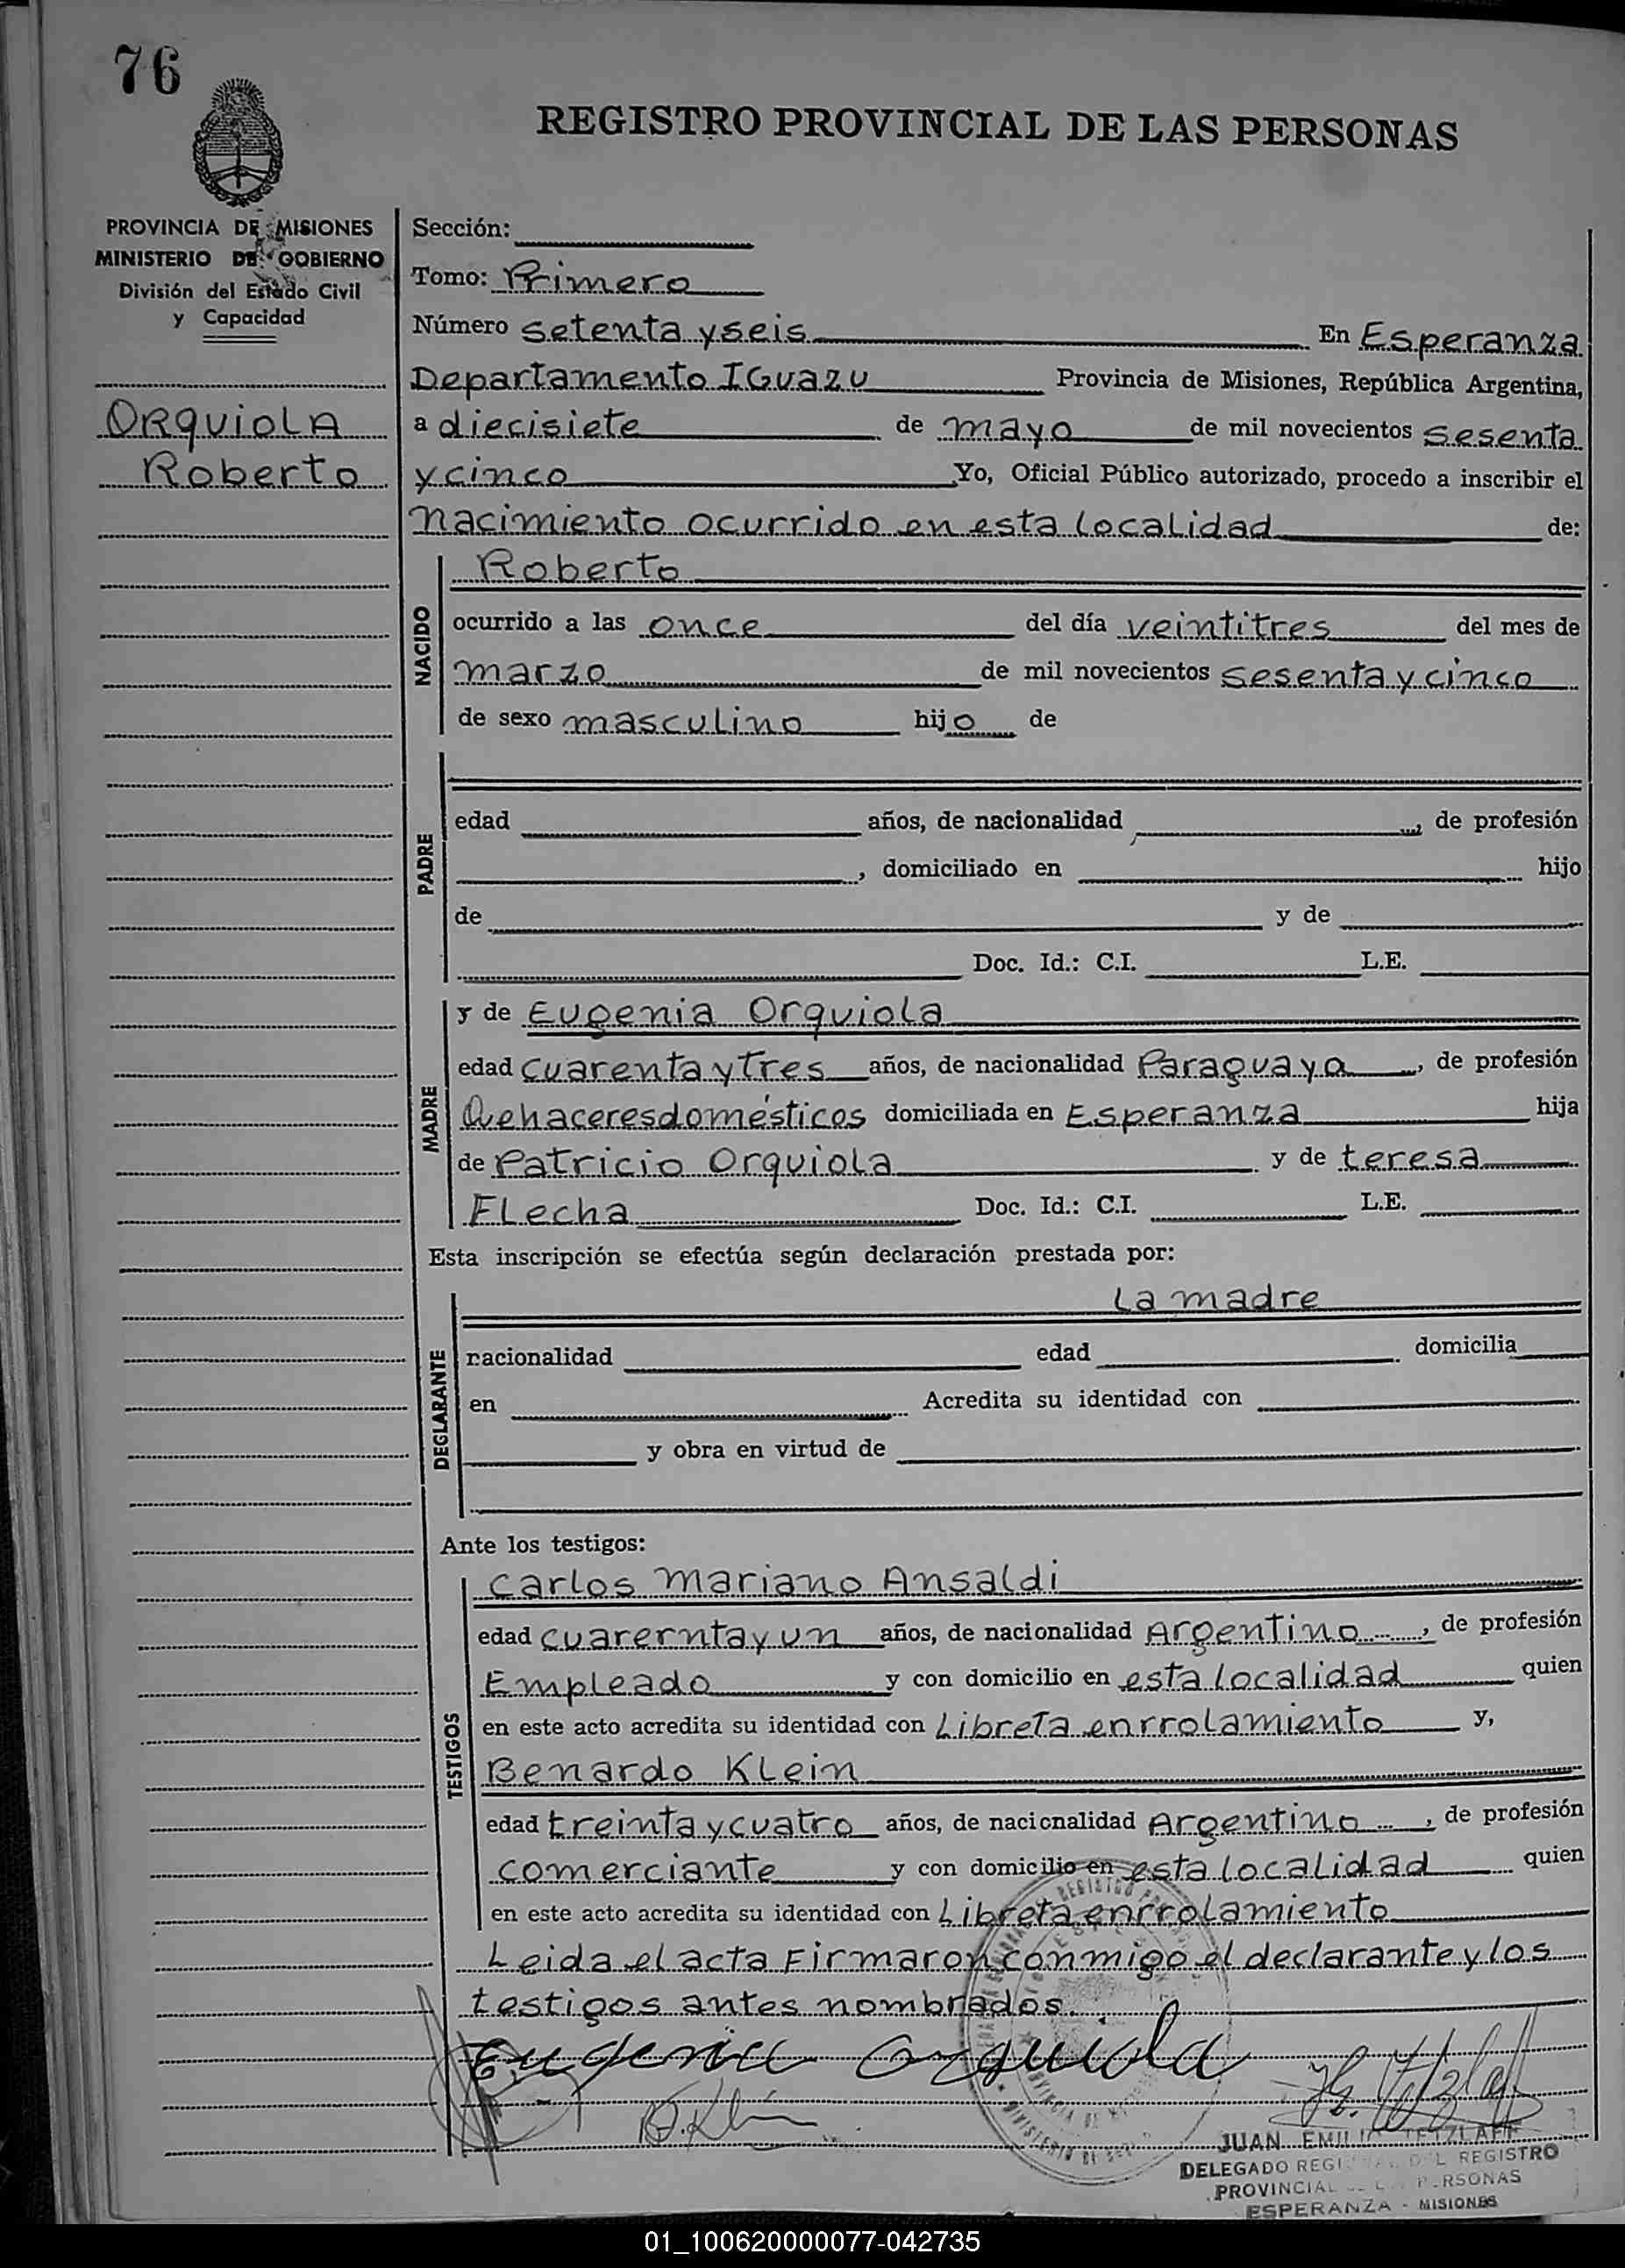 76
REGISTRO PROVINCIAL DE LAS PERSONAS
PROVINCIA DE MISIONES
MINISTERIO DE GOBIERNO
División del Estado Civil
y Capacidad
ORquiOLA
Roberto
Sección:
Tomo: Primero
Número setenta y seis En Esperanza
Departamento IGuazu Provincia de Misiones, República Argentina,
a diecisiete de mayo de mil novecientos sesenta
y cinco Yo, Oficial Público autorizado, procedo a inscribir el
nacimiento ocurrido en esta localidad de:
NACIDO
Roberto
ocurrido a las once del día veintitres del mes de
marzo de mil novecientos sesenta y cinco
de sexo masculino hijo de
PADRE
edad años, de nacionalidad , de profesión
, domiciliado en hijo
de y de
Doc. Id.: C.I. L.E.
MADRE
y de Eugenia Orquiola
edad cuarenta y Tres años, de nacionalidad Paraguaya , de profesión
Quehaceres domésticos domiciliada en Esperanza hija
de Patricio Orquiola y de teresa
FLecha Doc. Id.: C.I. L.E.
Esta inscripción se efectúa según declaración prestada por:
DECLARANTE
La madre
nacionalidad edad domicilia
en Acredita su identidad con
y obra en virtud de
Ante los testigos:
TESTIGOS
Carlos Mariano Ansaldi
edad cuarernta y un años, de nacionalidad Argentino , de profesión
Empleado y con domicilio en esta localidad quien
en este acto acredita su identidad con Libreta enrrolamiento y,
Benardo Klein
edad treinta y cuatro años, de nacionalidad Argentino , de profesión
comerciante y con domicilio en esta localidad quien
en este acto acredita su identidad con Libreta enrrolamiento
Leida el acta Firmaron conmigo el declarante y los
testigos antes nombrados.
Eugenia Orquiola
B. Klein
JUAN EMILIO TETZLAFF
DELEGADO DEL REGISTRO
PROVINCIAL PERSONAS
ESPERANZA - MISIONES
01_100620000077-042735